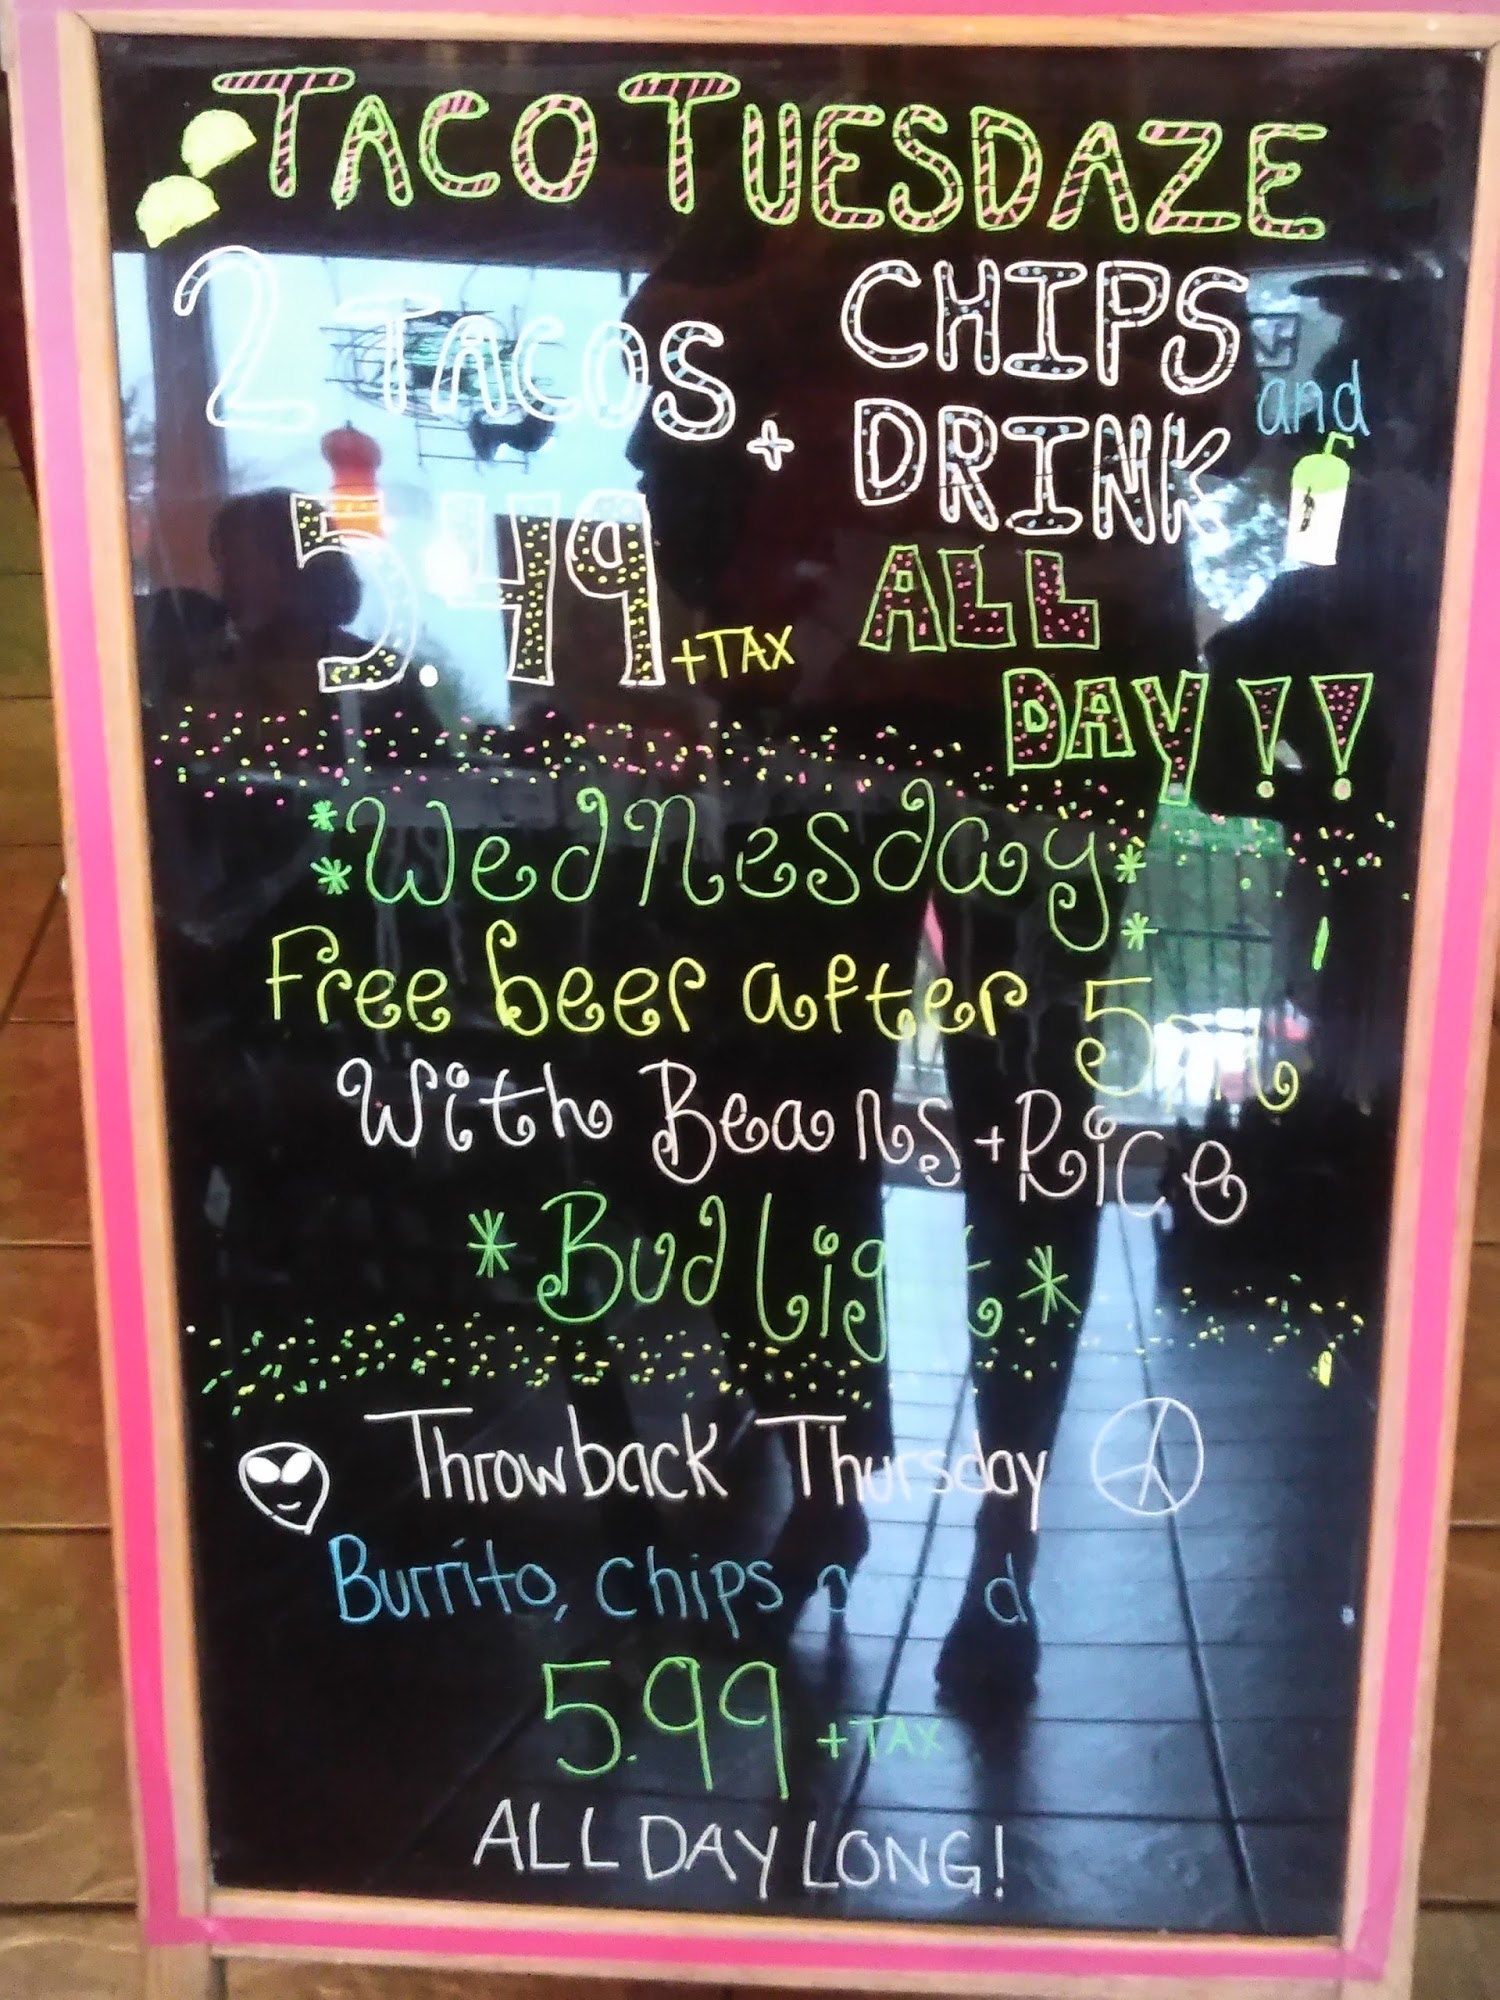 TACO TUESDAZE
2 TACOS + CHIPS and
DRINK
5.49 +TAX ALL
DAY!!
*Wednesday*
Free beer after 5pm
With Beans + Rice
*Bud Light*
Throwback Thursday
Burrito, chips
5.99 +TAX
ALL DAY LONG!